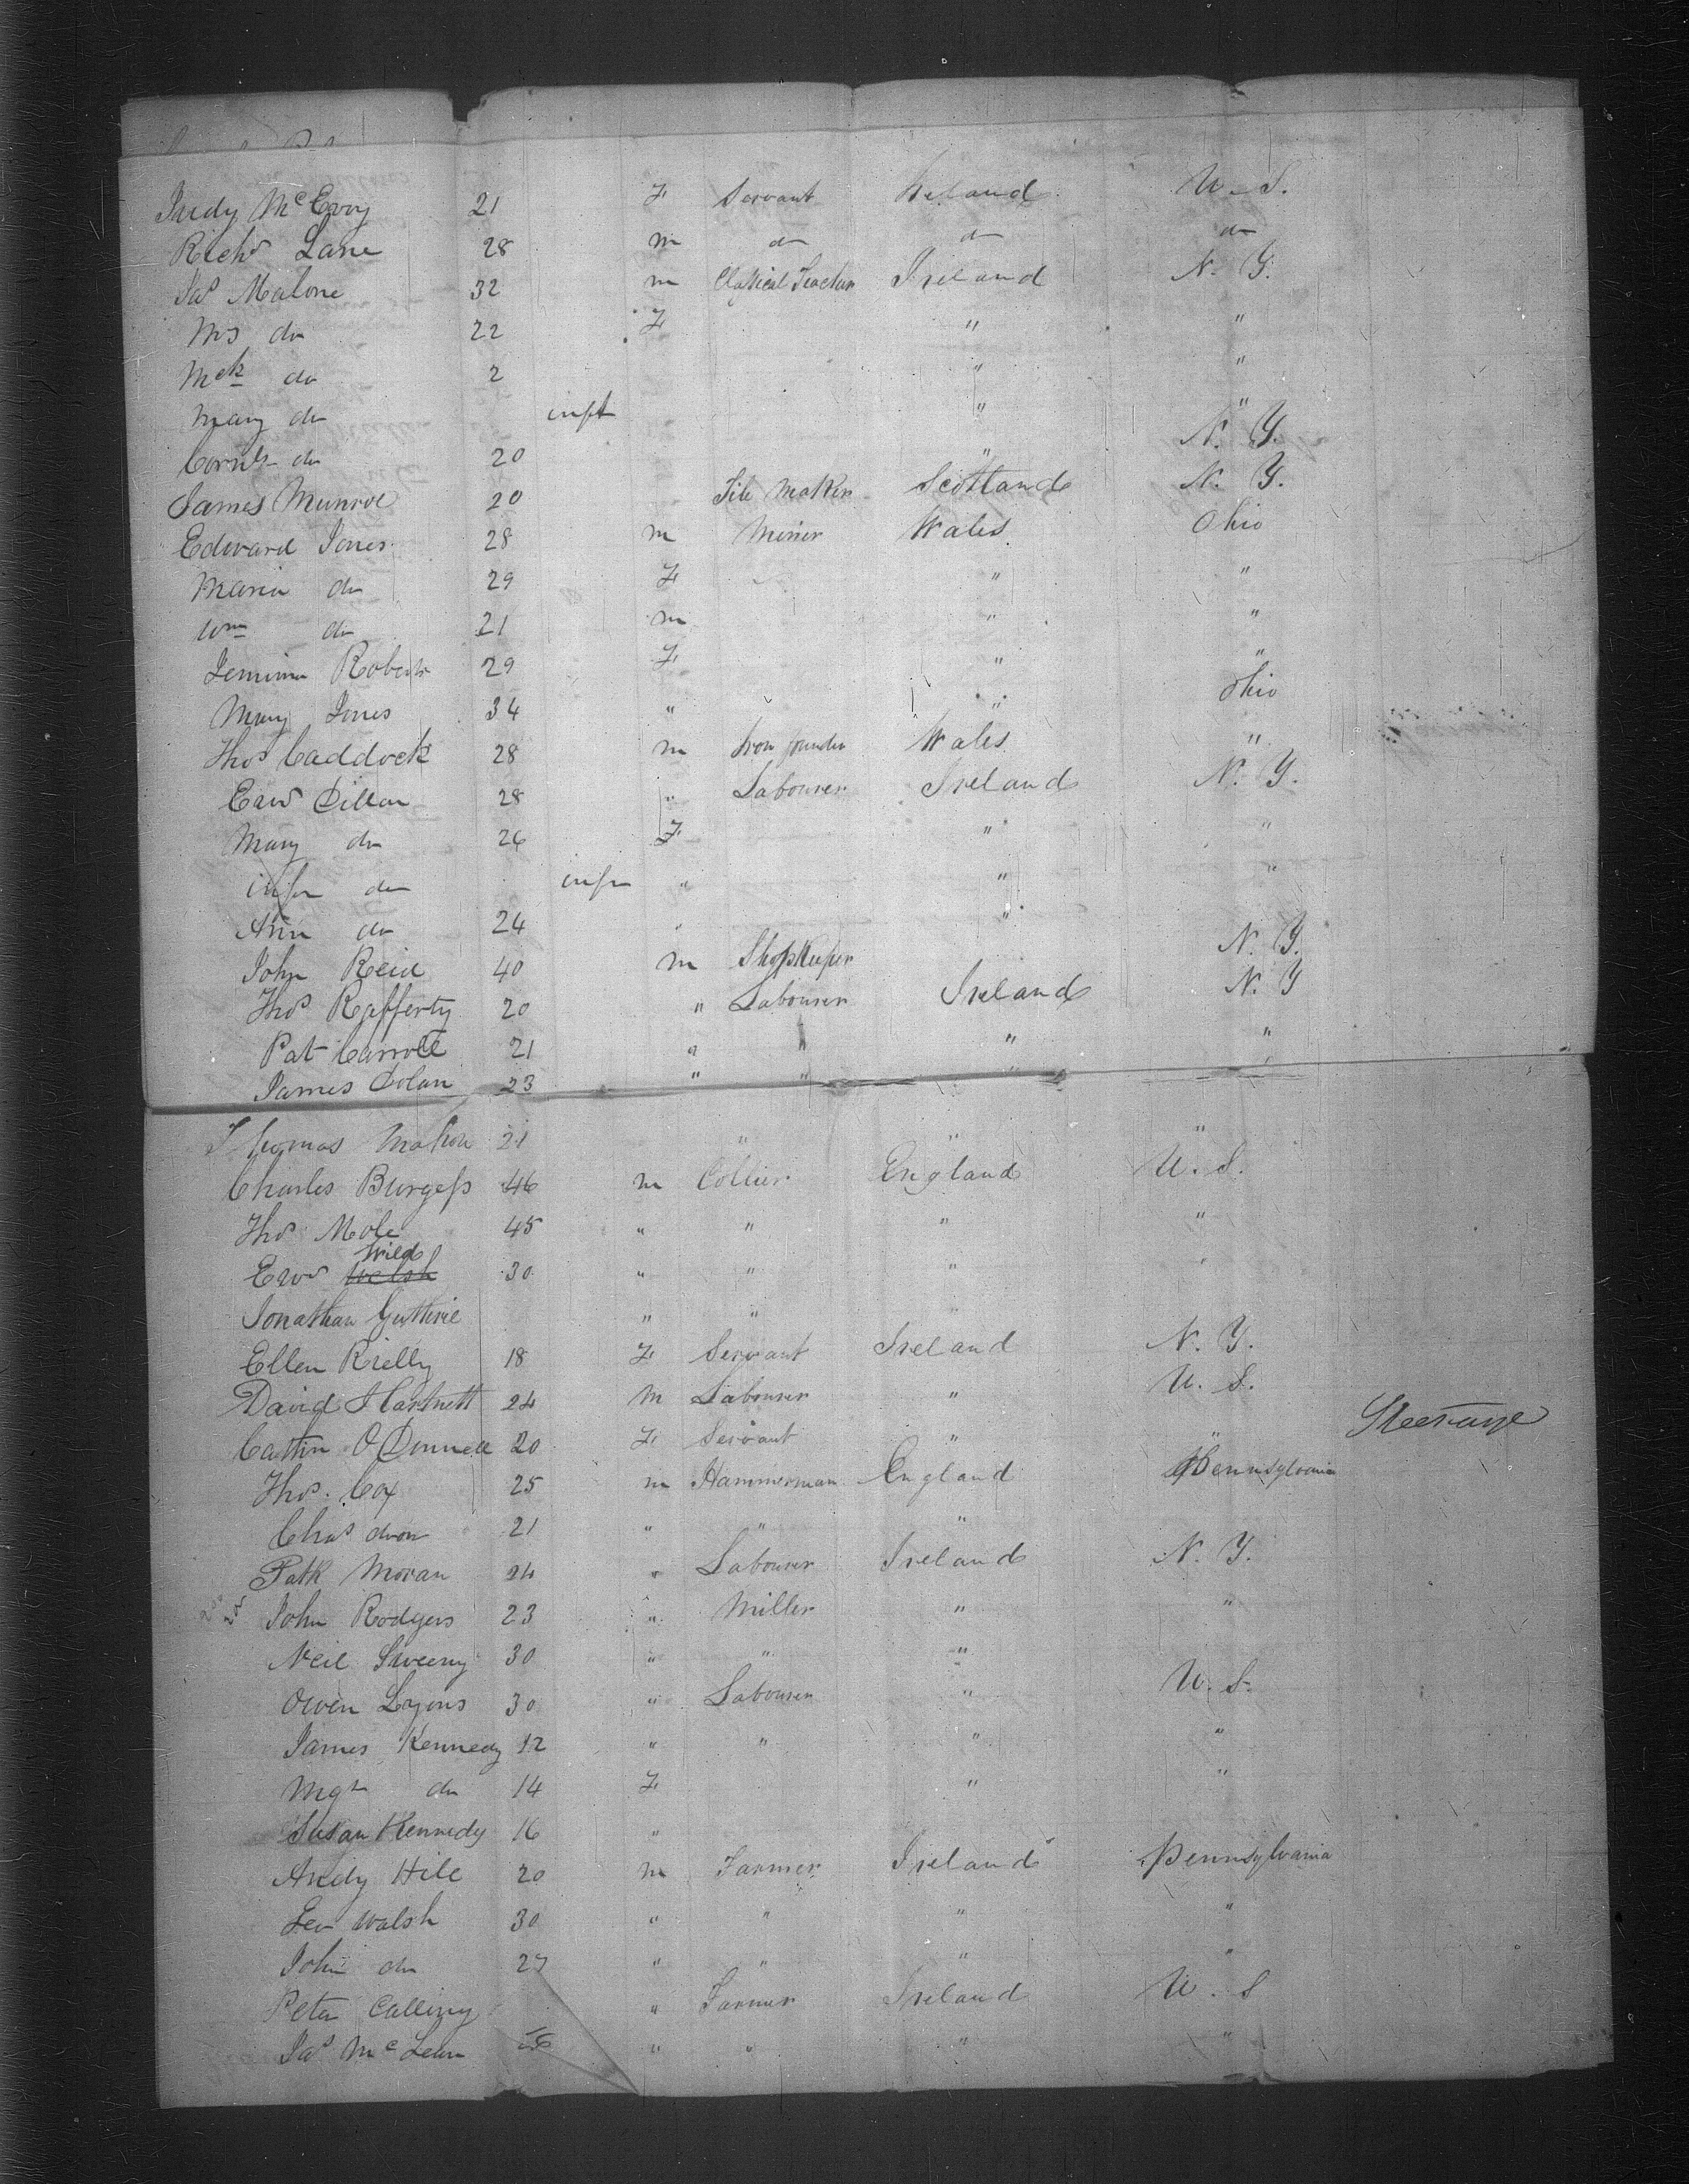 Judy McEvoy 21 F Servant Ireland U. S.
Richd Lane 28 m do do do
Jas Malone 32 m Classical Teacher Ireland N. Y.
Mrs do 22 F " "
Mck do 2 " "
Mary do inft " "
Corns do 20 " N. Y.
James Munroe 20 Tile Maker Scotland N. Y.
Edward Jones 28 m Miner Wales Ohio
Maria do 29 F " "
Wm do 21 m " "
Jemima Roberts 29 F " "
Mary Jones 34 " " Ohio
Thos Caddock 28 m Iron founder Wales "
Edwd Dillon 28 " Labourer Ireland N. Y.
Mary do 26 F " "
infn do infn " " "
Ann do 24 " "
John Reid 40 m Shopkeeper N. Y.
Thos Rafferty 20 " Labourer Ireland N. Y
Pat Carroll 21 " " " "
James Dolan 23 " " " "
Thomas Mahon 21 " " "
Charles Burgess 46 m Collier England U. S.
Thos Mole 45 " " " "
Wild
Edwd Welsh 30 " " " "
Jonathan Guthrie " " "
Ellen Rielly 18 F Servant Ireland N. Y.
David Hartnett 24 m Labourer " U. S.
Steerage
Cathn O'Donnell 20 F Servant " "
Thos. Cox 25 m Hammerman England Pennsylvania
Chas do 21 " " "
Patk Moran 24 " Labourer Ireland N. Y.
John Rodgers 23 " Miller " "
Neil Sweeny 30 " " "
Owen Lyons 30 " Labourer " U. S.
James Kennedy 12 " " " "
Mgt do 14 F " "
Susan Kennedy 16 "
Andy Hill 20 m Farmer Ireland Pennsylvania
Walsh 30 " " " "
John do 27 " " " "
Peter Calling " Farmer Ireland U. S
Jas McLean " " " "